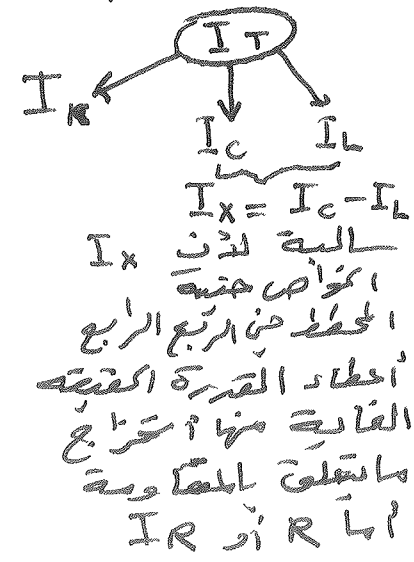 I T
I R
I C I L
I X = I C - I L
I X سالبة لأن
الخواص حثية
المخطط من الربع الرابع
أعطاء القدرة الحقيقة
الغاية منها استخراج
مايتعلق بالمقاومة
أما R أو I R